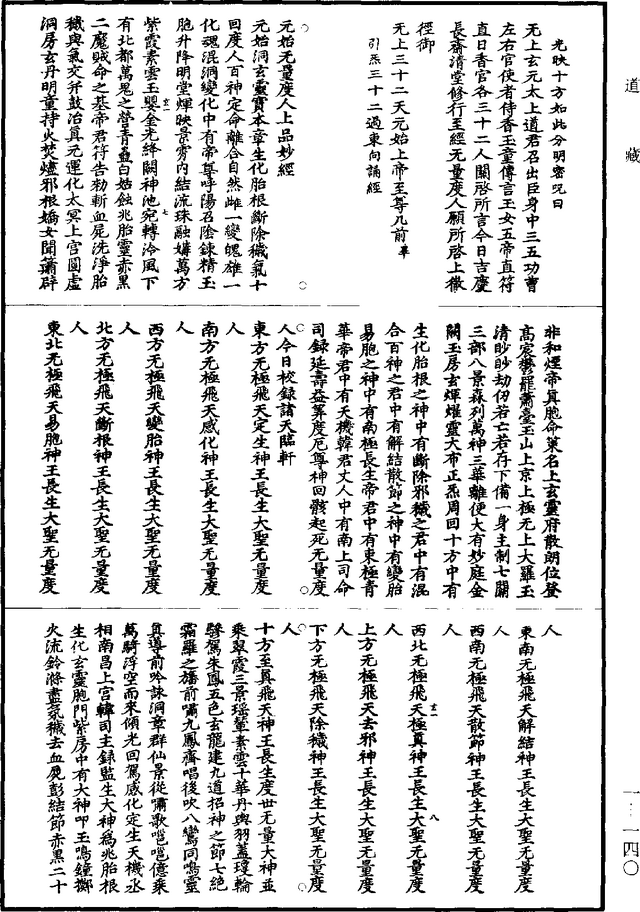 道藏
光映十方如此分明密咒曰
无上玄元太上道君召出臣身中三五功曹
左右官使者侍香玉童傳言玉女五帝直符
直日香官各三十二人關啓所言今日吉慶
長齋清堂修行至經无量度人願所啓上徹
徑御
无上三十二天元始上帝至尊几前畢
引炁三十二過東向誦經
元始无量度人上品妙經
元始洞玄靈寶本章生化胎根斷除穢氣十
回度人百神定命離合自然雌一變魄雄一
化魂混洞變化中有帝尊呼陽召陰鍊精玉
胞升降明堂煇映景雾內結流珠融嬚萬方
紫霞素雲玉嬰金光絳闕神池宛轉泠風下
有北都萬鬼之營青蟲白姑蝕兆胎靈赤黑
二魔賊命之基帝君符告勑斬血屍洗淨胎
穢與氣交并皷治真元運化太冥上宮圓虛
洞房玄丹明童持火焚爐邪根嬌女聞簫辟
非和煙帝真胞命策名上玄靈府散朗位登
高宸鬱羅蕭臺玉山上京上極无上大羅玉
清眇眇劫仞若亡若存下備一身主制七關
三部八景森列萬神三華離便大有妙庭金
闕玉房玄煇燿靈大布正炁周回十方中有
生化胎根之神中有斷除邪穢之君中有混
合百神之君中有解結散節之神中有變胎
易胞之神中有南極長生帝君中有東極青
華帝君中有天機韓君丈人中有南上司命
司錄延壽益筭度厄尊神回骸起死无量度
人今日校錄諸天臨軒
東方无極飛天定生神王長生大聖无量度
人
南方无極飛天感化神王長生大聖无量度
人
西方无極飛天變胎神王長生大聖无量度
人
北方无極飛天斷根神王長生大聖无量度
人
東北无極飛天易胞神王長生大聖无量度
人
東南无極飛天解結神王長生大聖无量度
人
西南无極飛天散節神王長生大聖无量度
人
西北无極飛天極真神王長生大聖无量度
人
上方无極飛天去邪神王長生大聖无量度
人
下方无極飛天除穢神王長生大聖无量度
人
十方至真飛天神王長生度世无量大神並
乘翠霞三景瑶輦素雲十華丹輿羽蓋瓊輪
驂駕朱鳳五色玄龍建九道招神之節七絕
霜羅之旛前嘯九鳳齊唱後吹八鸞同鳴靈
真導前吟詠洞章群仙景從嘯歌嗈嗈億乘
萬騎浮空而來傾光回駕感化定生天機丞
相南昌上宮韓司主錄監生大神爲兆胎根
生化玄靈胞門紫房中有大神叩玉鳴鐘擲
火流鈴滌盡氛穢去血屍彭結節赤黑二十
一—一四〇